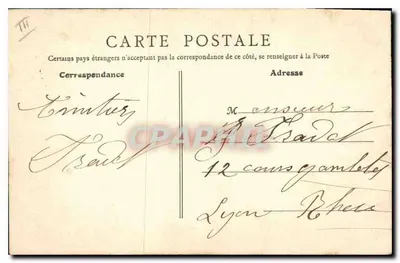 III
CARTE POSTALE
Certains pays étrangers n'acceptant pas la correspondance de ce côté, se renseigner à la Poste
Correspondance
Adresse
Monsieur
12 cours gambetta
Lyon Rhône
CPARAMA